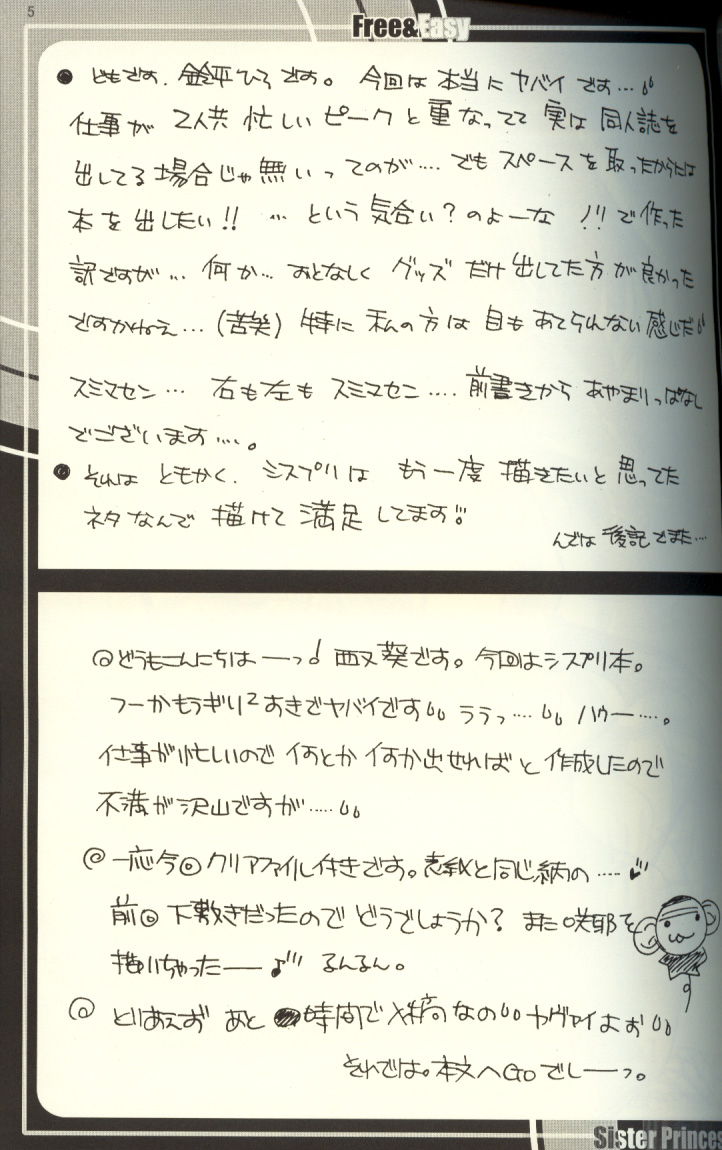 5
Free&Easy
● どもです、鈴平ひろです。今回は本当にヤバイです…
仕事が2人共忙しいピークと重なってて実は同人誌を
出してる場合じゃ無いってのが…. でもスペースを取ったからには
本を出したい!! … という気合い?のよーな !! で作った
訳ですが… 何か… おとなしくグッズだけ出してた方が良かった
ですかねぇ…(苦笑) 特に私の方は目もあてられない感じだ
スミマセン… 右も左もスミマセン…. 前書きからあやまりっぱなし
でございます….。
● それはともかく、シスプリはもう一度描きたいと思ってた
ネタなんで描けて満足してます!!
んでは後記でまた…
@どうもこんにちは——っ♪ 西又葵です。今回はシスプリ本。
フーかもうギリ2あきでヤバイです ララっ…. ハウー….。
仕事が忙しいので何とか何か出せればと作成したので
不満が沢山ですが…..
@一応今回クリアファイル付きです。表紙と同じ絵柄の ….
前回下敷きだったのでどうでしょうか? また咲耶を
描いちゃった——♪ るんるん。
@ とりあえずあと●時間で入稿なの ヤヴァイよお
それでは。本文へGoでしーーっ。
Sister Princes